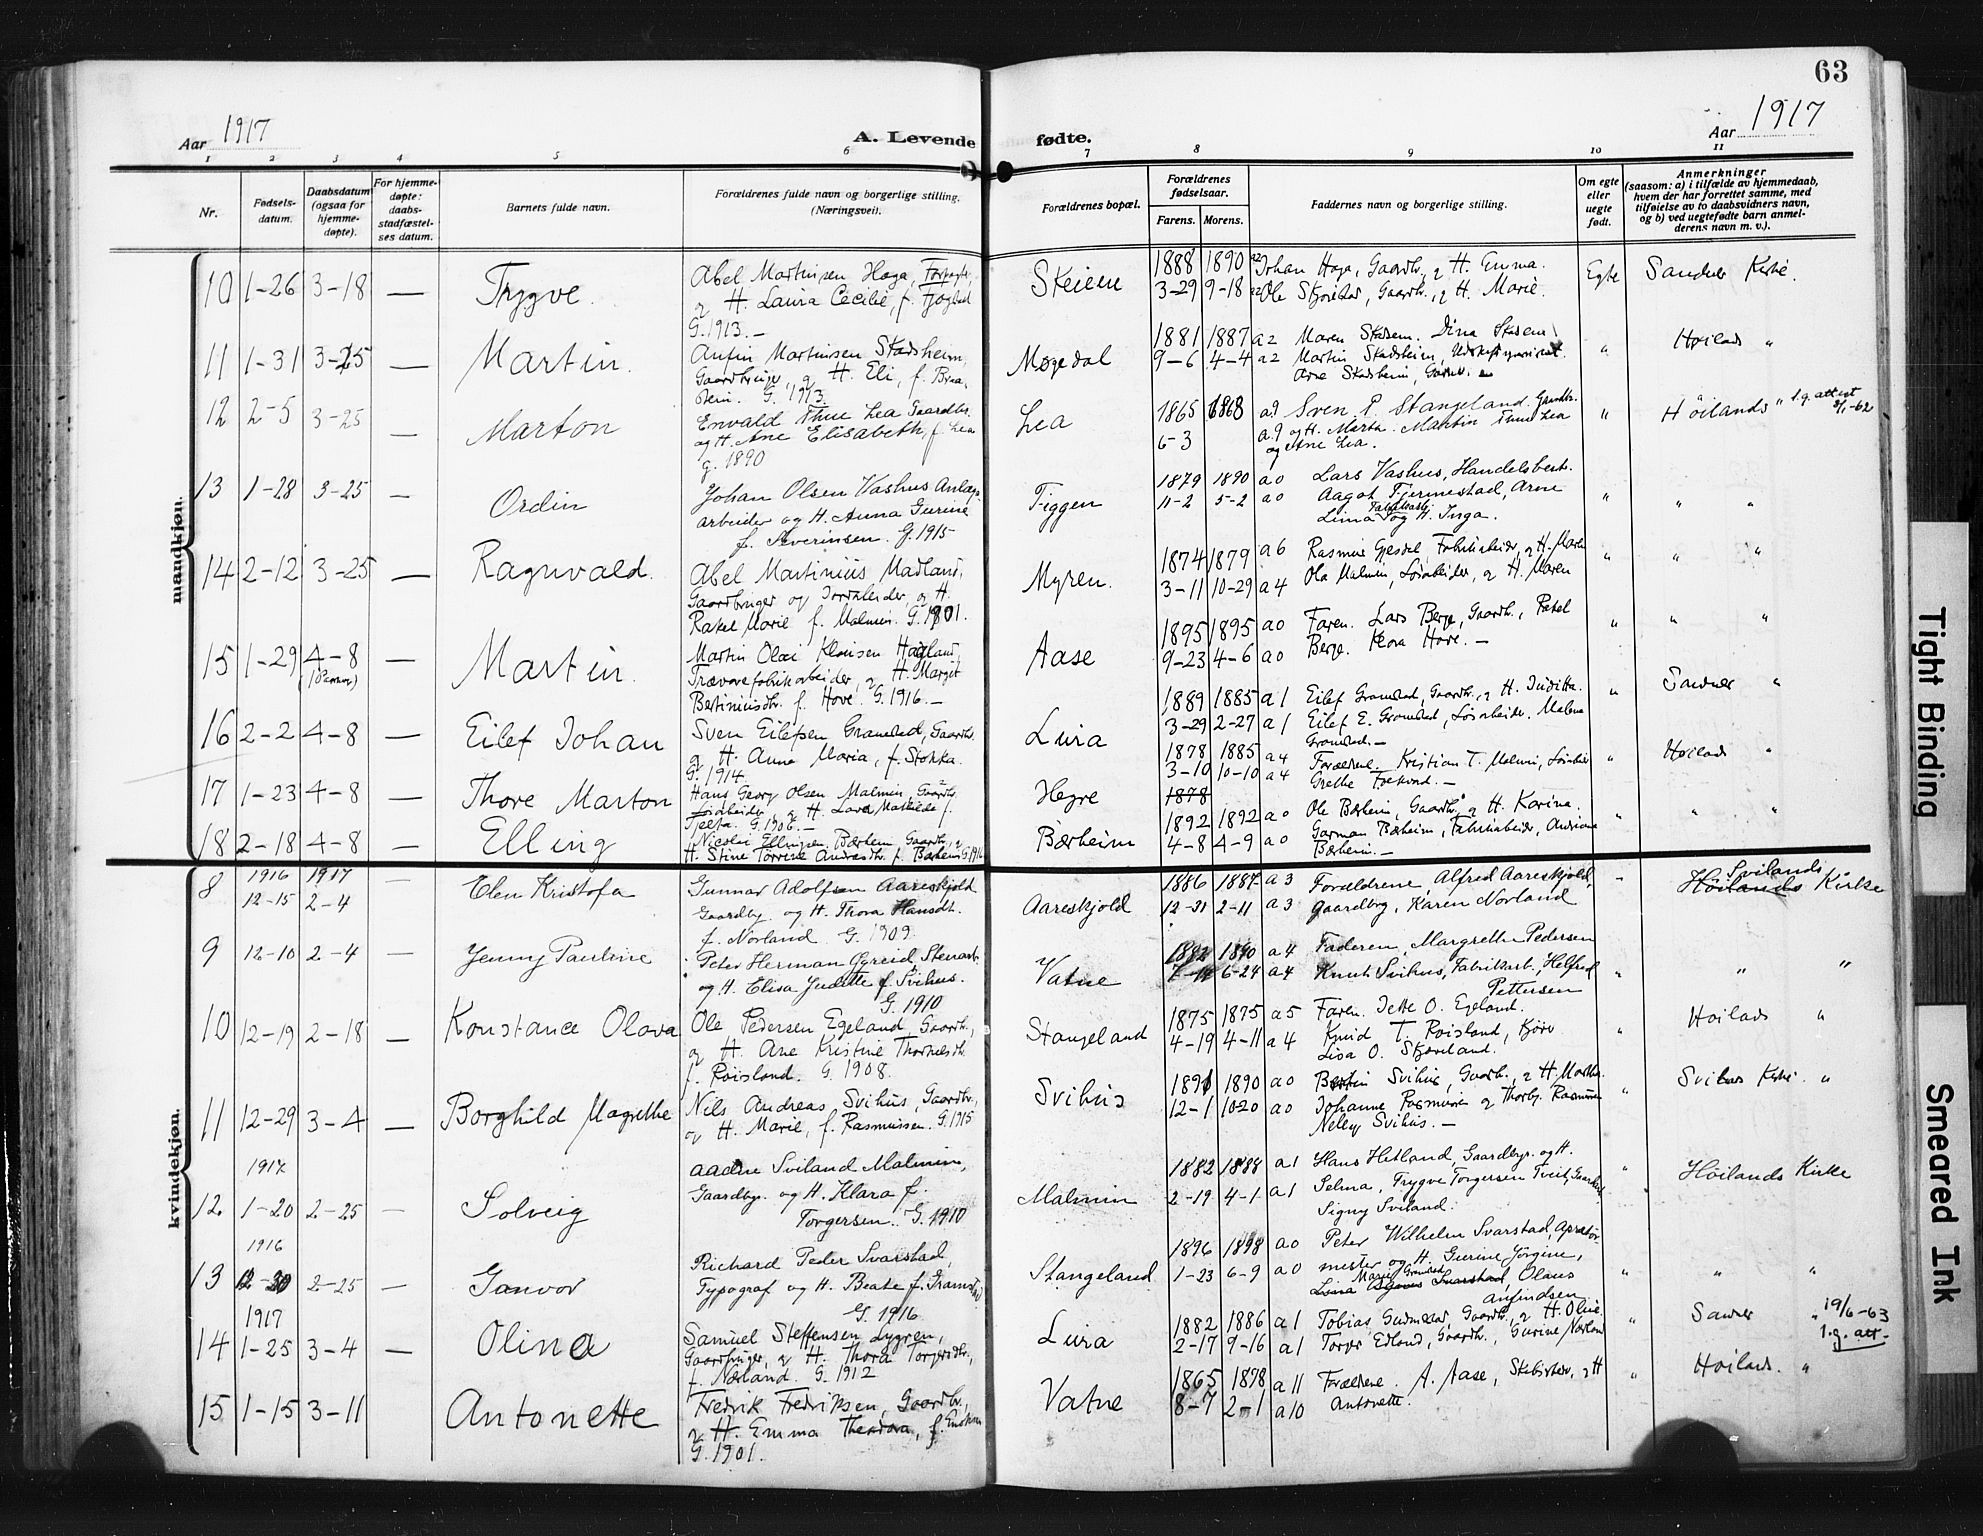 63
Aar 1917
A. Levende fødte.
Aar 1917
1 2 3 4 5 6 7 8 9 10 11
Nr.
Fødselsdatum.
Daabsdatum (ogsaa for hjemmedøpte).
For hjemmedøpte: daabsstadfæstelses datum.
Barnets fulde navn.
Forældrenes fulde navn og borgerlige stilling. (Næringsvei).
Forældrenes bopæl.
Forældrenes fødselsaar.
Farens. Morens.
Faddernes navn og borgerlige stilling.
Om egte eller uegte født.
Anmerkninger
(saasom: a) i tilfælde av hjemmedaab,
hvem der har forrettet samme, med
tilføielse av to daabsvidners navn,
og b) ved uegtefødte barn anmel-
derens navn m. v.).
mandkjøn.
10 1-26 3-18 — Trygve.
Abel Martinsen Haga,
og H. Laura Cecilie, f.
G. 1913. —
Skeien
1888 1890
3-29 9-18
Johan Haga, Gaardbr., og H. Emma.
Ole Gaardbr., og H. Marie.
Egte
Sandnes Kirke.
11 1-31 3-25 — Martin.
Anfin Martinsen Stadsheim,
Gaardbruger, og H. Eli, f.
G. 1913.
Mogedal
1881 1887 a2
9-6 4-4 a2
Maren Dina
Martin Stadsheim,
Arne Stadsheim,
"
Høiland "
12 2-5 3-25 — Marton
Envald Thue Lea Gaardbr.
og H. Ane Elisabeth, f. Lea
g. 1890
Lea
1865 1868 a.9
6-3 a.9
Sven P. Stangeland. Gaardbr.
og H. Marta. Martin Thue Lea
og Ane Lea.
"
Höilands " l.g. attest
-62
13 1-28 3-25 — Ordin
Johan Olsen Vashus Anlægs
arbeider og H. Anna Gurine
f. Severinsen. G. 1915
Figgen
1879 1890 a0
11-2 5-2 a0
Lars Vashus, Handelsbest.
Aagot Fjermestad, Arne
Lima og H. Inga.
" " "
14 2-12 3-25 — Ragnvald.
Abel Martinius Madland,
Gaardbruger og Jordarbeider, og H.
Rakel Marie f. Malmin. G. 1901.
Myren.
1874 1879 a6
3-11 10-29 a4
Rasmus Gjesdal Fabrikarbeider, og H. Marta
Ola Malmin, Løsarbeider, og H. Maren
" " "
15 1-29 4-8 — Martin.
Martin Olai Klausen Hadland,
Trævarefabrikarbeider, og H. Margit
Bertiniusdtr. f. Hove. G. 1916. —
Aase
1895 1895 a0
9-23 4-6 a0
Faren. Lars Berge, Gaardbr., Rakel
Berge. Hove. —
" " "
16 2-2 4-8 — Eilef Johan
Sven Eilefsen Gramstad, Gaardbr.
og H. Anna Maria, f. Stokka.
G. 1914.
Lura
1889 1885 a1
3-29 2-27 a1
Eilef Gramstad, Gaardbr., og H. Juditta.
Eilef E. Gramstad, Løsarbeider. Malena
Gramstad. —
"
Sandnes "
17 1-23 4-8 — Thore Marton
Hans Georg Olsen Malmin, Gaardbr.
Løsarbeider, og H. Lava Mathilde f.
Tjelta. G. 1906. —
Hegre
1878 1885 a4
3-10 10-10 a4
1878
Forældrene. Kristian T. Malmin, Løsarbeider
Grethe —
"
Høiland "
18 2-18 4-8 — Elling
Nicolai Ellingsen Bærheim Gaardbr. og
H. Stine Torrine Andrasdtr. f. Bærheim
Bærheim
1892 1892 a0
4-8 4-9 a0
Ole Bærheim, Gaardbr., og H. Karina.
Gorman Bærheim, Fabrikarbeider, Andriana
Bærheim. —
" " "
kvindekjøn.
1916 1917
8 12-15 2-4 — Elen Kristofa
Gunnar Adolfsen Aareskjold
Gaardbg. og H. Thora Hansdt.
f. Norland G. 1909.
Aareskjold
1886 1887 a3
12-21 2-11 a3
Forældrene, Alfred Aareskjold,
Gaardbrg, Karen Norland
"
Svilands
Höilands Kirke
9 12-10 2-4 — Jenny Pauline
Peter Herman Stenarb.
og H. Elisa Juditte f. Svihus.
G. 1910
Vatne
1882 1890 a4
6-24 a4
Faderen, Margrethe Pedersen
Knut Svihus, Fabrikarb., Helfred
Pettersen
" " "
10 12-19 2-18 — Konstance Olava
Ole Pedersen Egeland, Gaardbr.,
og H. Ane Kristine Thorkelsdtr.
f. Roisland. G. 1908.
Stangeland
1875 1875 a5
4-19 4-11 a4
Faren. Jette O. Egeland.
T. Roisland,
Lisa O. Skjæveland.
"
Høiland "
11 12-29 3-4 — Borghild Magrethe
Nils Andreas Svihus, Gaardbr.,
og H. Marie, f. Rasmussen. G. 1915
Svihus
1891 1890 a0
12-1 10-20 a0
Svihus, Gaardbr., og H. Martha.
Johanne Rasmussen og Thorbj. Rasmussen
Nelly Svihus. —
"
Svilands Kirke. "
1917
12. 1-20 2-25 — Solveig
Aadne Sviland Malmin,
Gaardbgr. og H. Klara f.
Torgersen. G. 1910
Malmin
1882 1888 a1
2-19 4-1 a1
Hans Hetland, Gaardbgr. og H.
Selma, Trygve Torgersen Tveit, Gaardbr.
Signy Sviland.
"
Höilands Kirke
1916
13 12-30 2-25 — Gunvor
Richard Peder Svarstad,
Typograf og H. Beate f. Gramstad
G. 1916.
Stangeland
1896 1898 a0
1-23 6-9 a0
Peter Wilhelm Svarstad,
mester og H. Gurine Jörgine,
Marie Gramstad
Lina Svarstad, Olaus
Anfindsen
" " "
1917
14 1-25 3-4 — Olina
Samuel Steffensen Lygren,
Gaardbruger, og H. Thora Torgersdtr.,
f. Nærland. G. 1912
Lura
1882 1886 a1
2-17 9-16 a1
Tobias Gudmestad, Gaardbr., og H. Oline.
Torger Edland, Gaardbr., Gurine Nærland
"
Sandnes " 19/6-63
l.g. att.
15 1-15 3-11 Antonette
Fredrik Fredriksen, Gaardbr.,
og H. Emma Theodora, f.
G. 1901.
Vatne
1865 1878 a11
8-7 2-1 a10
Forældrene. A. Aase, Skibsreder, og H
Antonette.
"
Høiland. "
Tight Binding
Smeared Ink